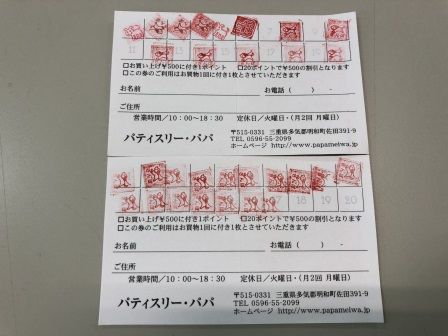 7 9
11
□お買い上げ¥500に付き1ポイント □20ポイントで¥500の割引となります
□この券のご利用はお買物1回に付き1枚とさせていただきます
お名前 お電話 ( ) -
ご住所
営業時間/10:00〜18:30 定休日/火曜日・(月2回 月曜日)
パティスリー・パパ
〒515-0331 三重県多気郡明和町佐田391-9
TEL 0596-55-2099
ホームページ http://www.papameiwa.jp
18 19 20
□お買い上げ¥500に付き1ポイント □20ポイントで¥500の割引となります
□この券のご利用はお買物1回に付き1枚とさせていただきます
お名前 お電話 ( ) -
ご住所
営業時間/10:00〜18:30 定休日/火曜日・(月2回 月曜日)
パティスリー・パパ
〒515-0331 三重県多気郡明和町佐田391-9
TEL 0596-55-2099
ホームページ http://www.papameiwa.jp